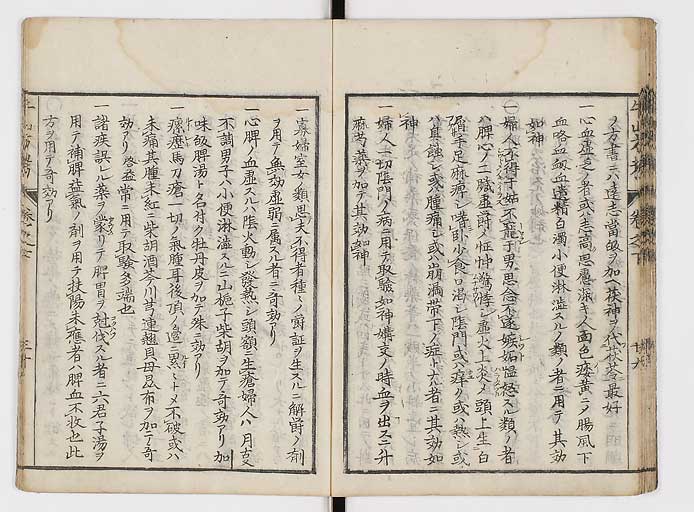 ヲ方書ニハ遠志當皈ヲ加ヘ茯神ヲ代茯苓最好
一心血虚乏ノ者或ハ志高思慮深キ人面色痿黄ニメ腸風下
血咯血衂血遺精白濁小便淋澁スルノ類ノ者ニ用テ其効
如神
一婦人不得于姑不寵于男思念不遂嫉妬慍怒スル類ノ者
ハ脾心ノ二臓虚メ怔忡驚悸シ虚火上炎メ頭上生白
手足麻痺シ嗜卧少食口渇シ陰門或ハ痒ク或ハ熱シ或
ハ腫痛シ或ハ崩漏帯下ノ症トナル者ニ其効如
神
一婦人一切陰門ノ病ニ用テ取驗如神媾交ノ時血ヲ出スニ升
麻芍薬ヲ加テ其効神
一寡婦室女類思夫不得者種々ノ欝証ヲ生スルニ解欝ノ剤
ヲ用テ無効虚弱ニ属スル者ニ奇効アリ
一心脾ノ血虚スルハ陰火動シ發熱シ頭額ニ生瘡婦人ハ月
不調男子ハ小便淋澁スルニ山梔子柴胡ヲ加テ奇効アリ加
味皈脾湯ト名付ク牡丹皮ヲ加テ殊ニ効アリ
一瘰癧馬刀瘡一切ノ氣腫耳後項ノ邉ニ累々トメ不破或ハ
未痛其腫未紅ニ柴胡酒芩川芎連翹貝母昆布ヲ加テ奇
効アリ啓益常ニ用テ取驗多端也
一諸疾誤レル薬ヲ蒙リテ脾胃ヲ尅伐スル者ニ六君子湯ヲ
用テ補脾益氣ノ剤ヲ用テ扶陽未應者ハ脾血不收也此
方ヲ用テ奇効アリ